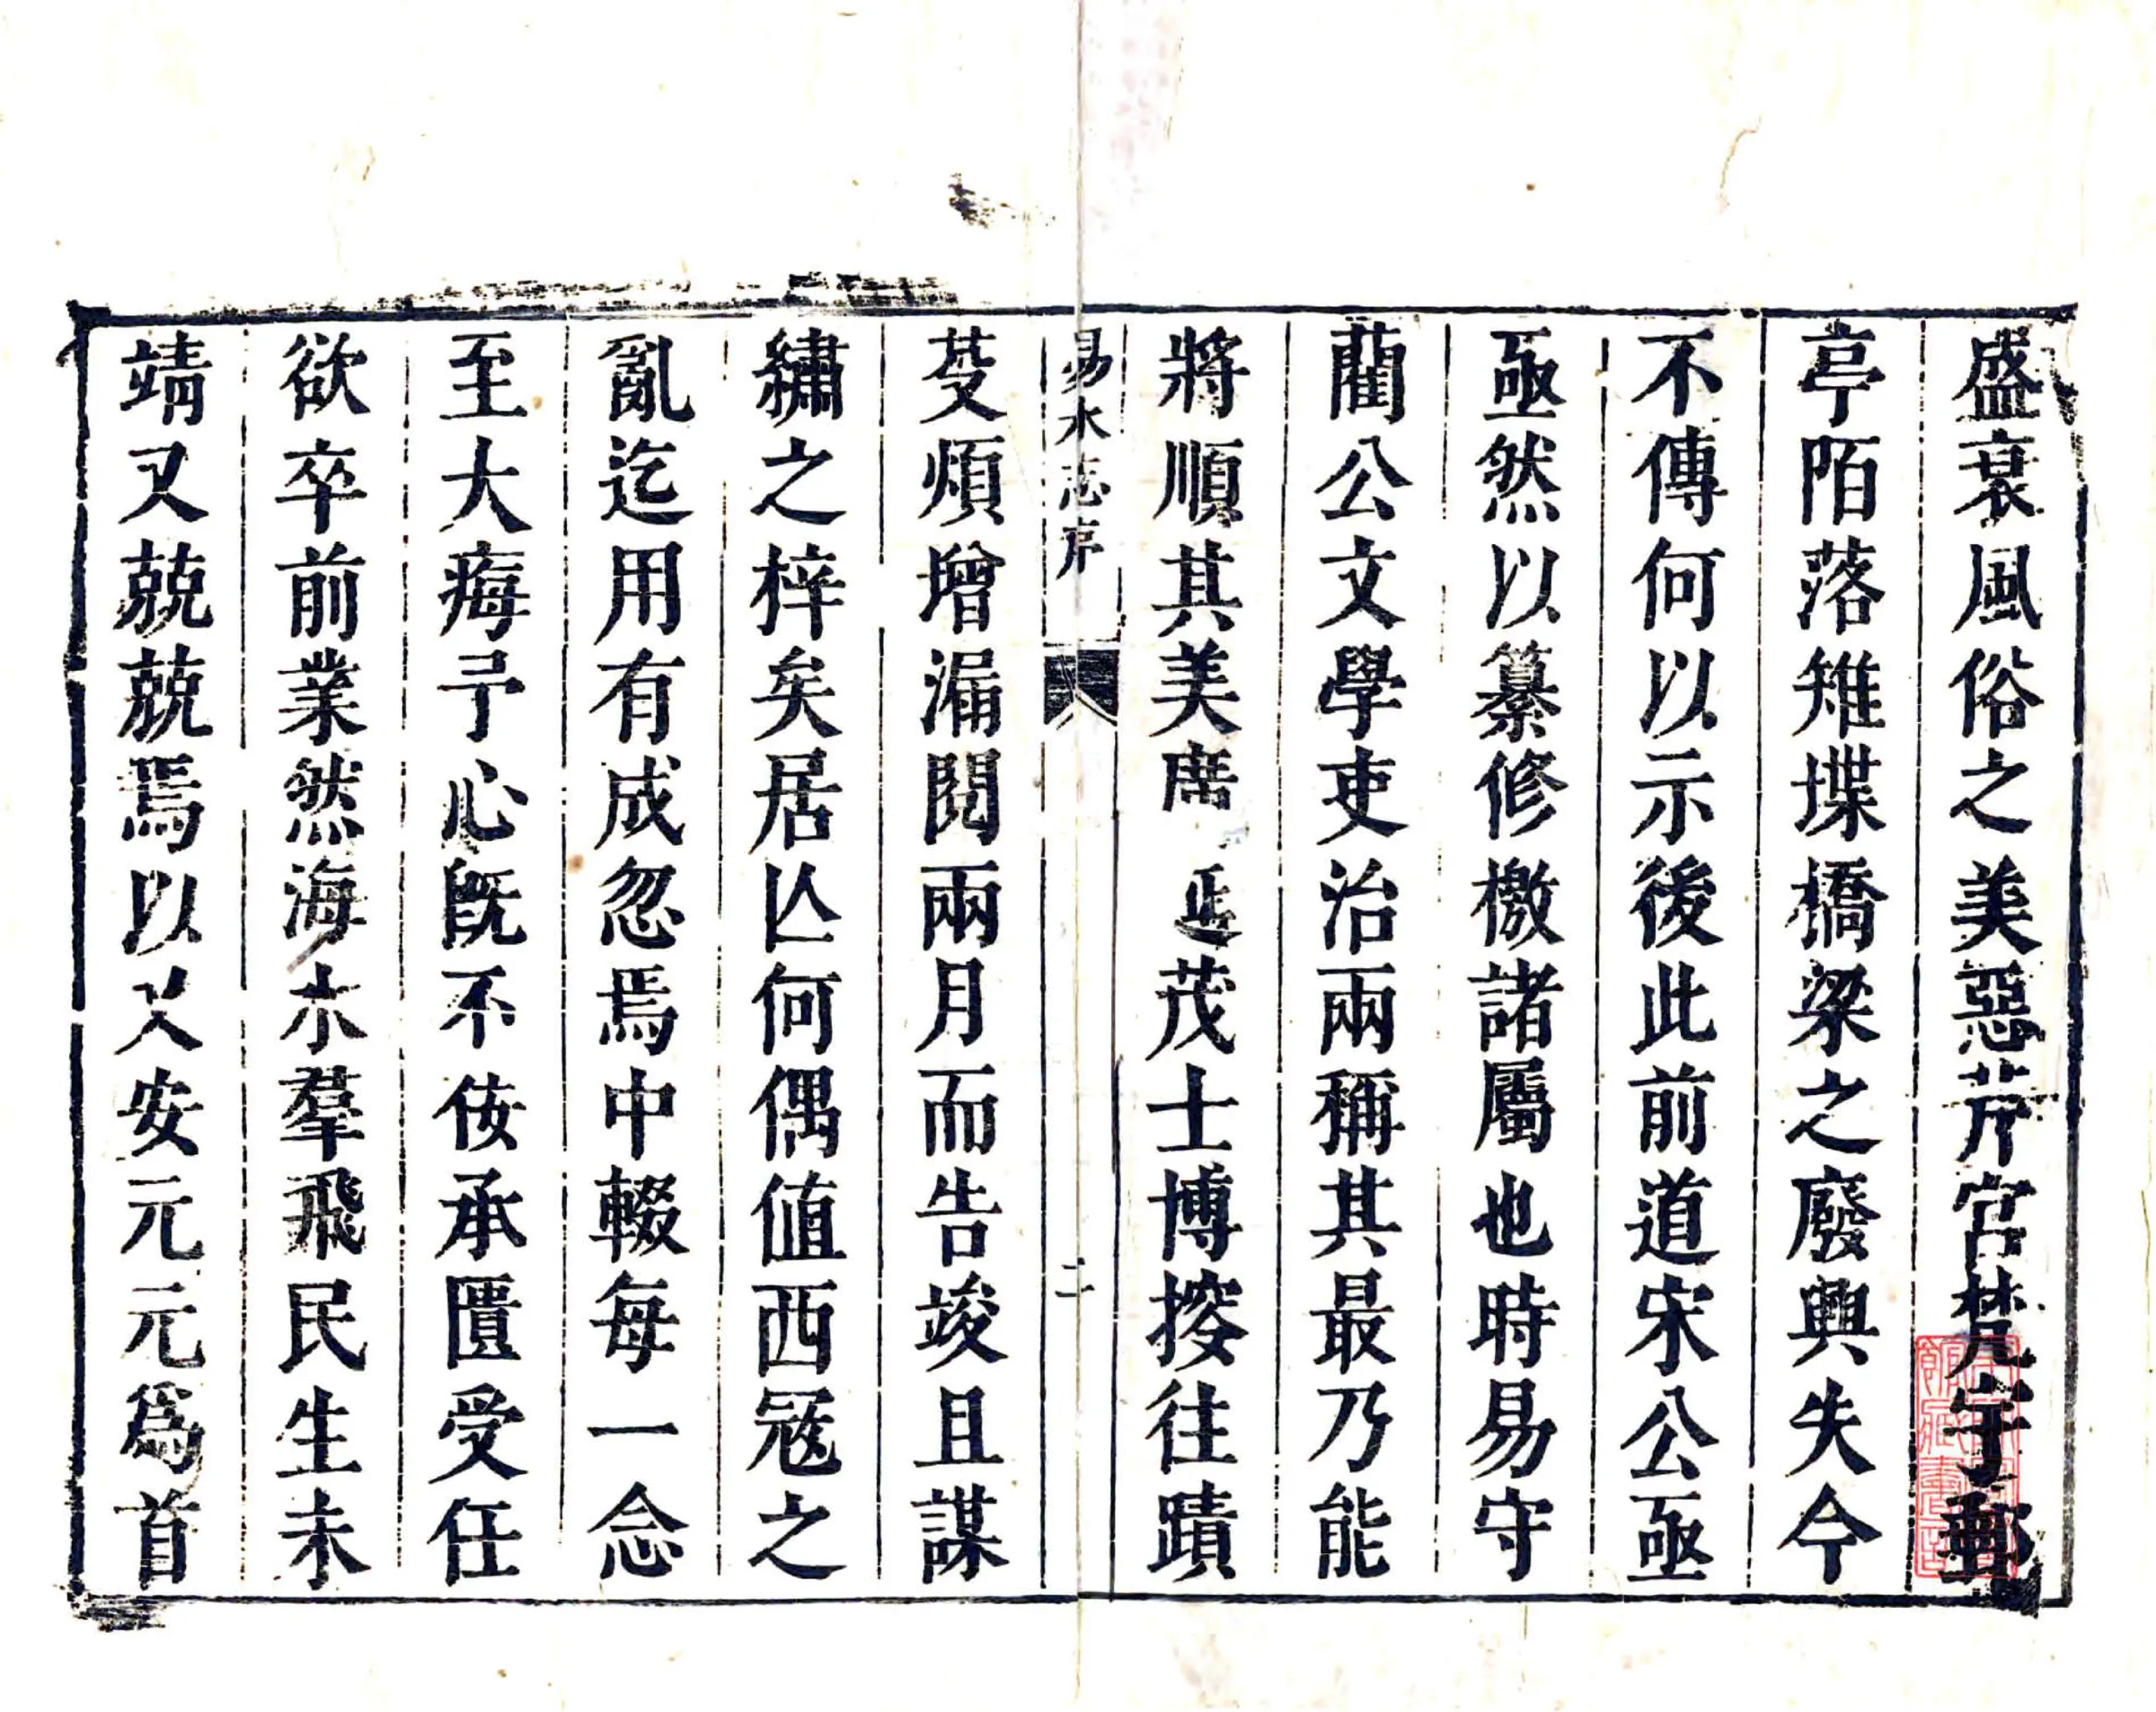 盛衰風俗之美惡芹宮梵宇郵
亭陌落雉堞橋梁之廢興失今
不傳何以示後此前道宋公亟
亟然以纂修檄諸屬也時易守
藺公文學吏治兩稱其最乃能
將順其美席延茂士博搜往蹟
易水志序
二
芟煩增漏閱兩月而告竣且謀
繡之梓矣居亾何偶值西寇之
亂迄用有成忽焉中輟每一念
至大痗予心旣不佞承匱受任
欲卒前業然海水羣飛民生未
靖又兢兢焉以乂安元元爲首